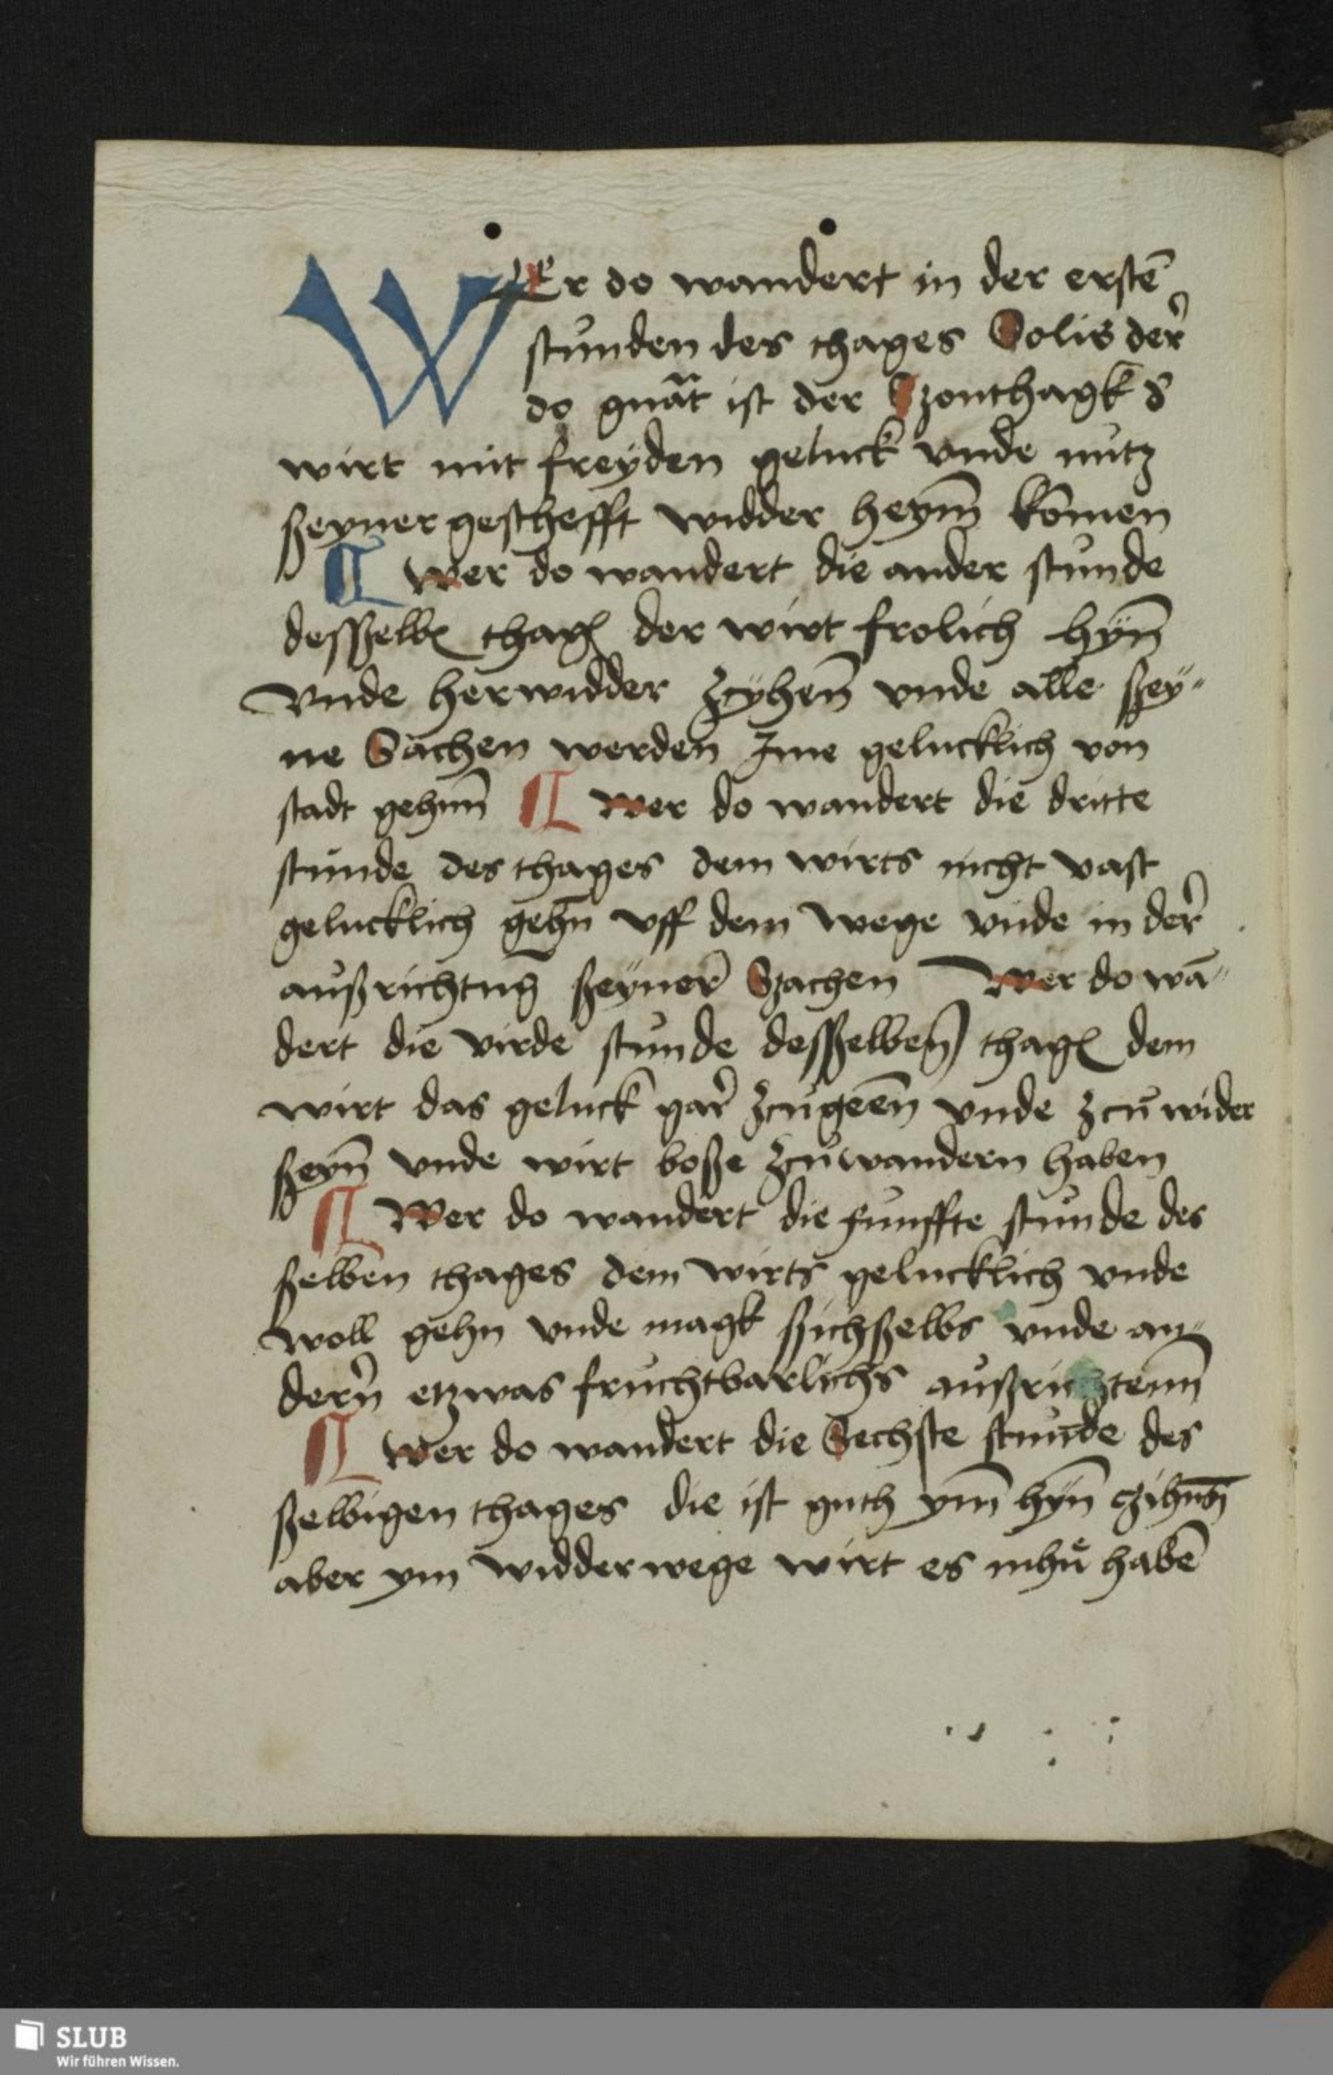 WEr do wandert in der erstē
stunden des thages Solis der
do gnāt ist der Szonthagk d̕
wirt mit freyden geluck vnde nutz
ßeyner geschefft widder heym̄ kōmen
¶ Wer do wandert die ander stunde
desßelbꝭ thagꝭ der wirt frolich hyn̄
Vnde herwidder zcyhen̄ vnde alle ßey⸗
ne Sachen werden Jme gelucklich von
stadt gehnn̄ ¶ Wer do wandert die dritte
stunde des thages dem wirts nicht vast
gelucklich gehn̄ vff dem wege vnde in der
außrichtūg ßeyner Szachen Wer do wā⸗
dert die virde stunde desßelben̄ thagꝭ dem
wirt das geluck gar zcugeen̄ vnde zcuwider
ßeyn̄ vnde wirt boße zcuwandern haben
¶ Wer do wandert die funffte stunde des
ßelben thages dem wirts gelucklich vnde
woll gehn vnde magk ßichßelbs vnde an⸗
dern̄ etzwas fruchtbarlichs außrichtenn̄
¶ Wer do wandert die Sechste stunde des
ßelbigen thages die ist guth ym̄ hyn̄ czihen̄
aber ym widderwege wirt es mhuͤ habē
SLUB
Wir führen Wissen.